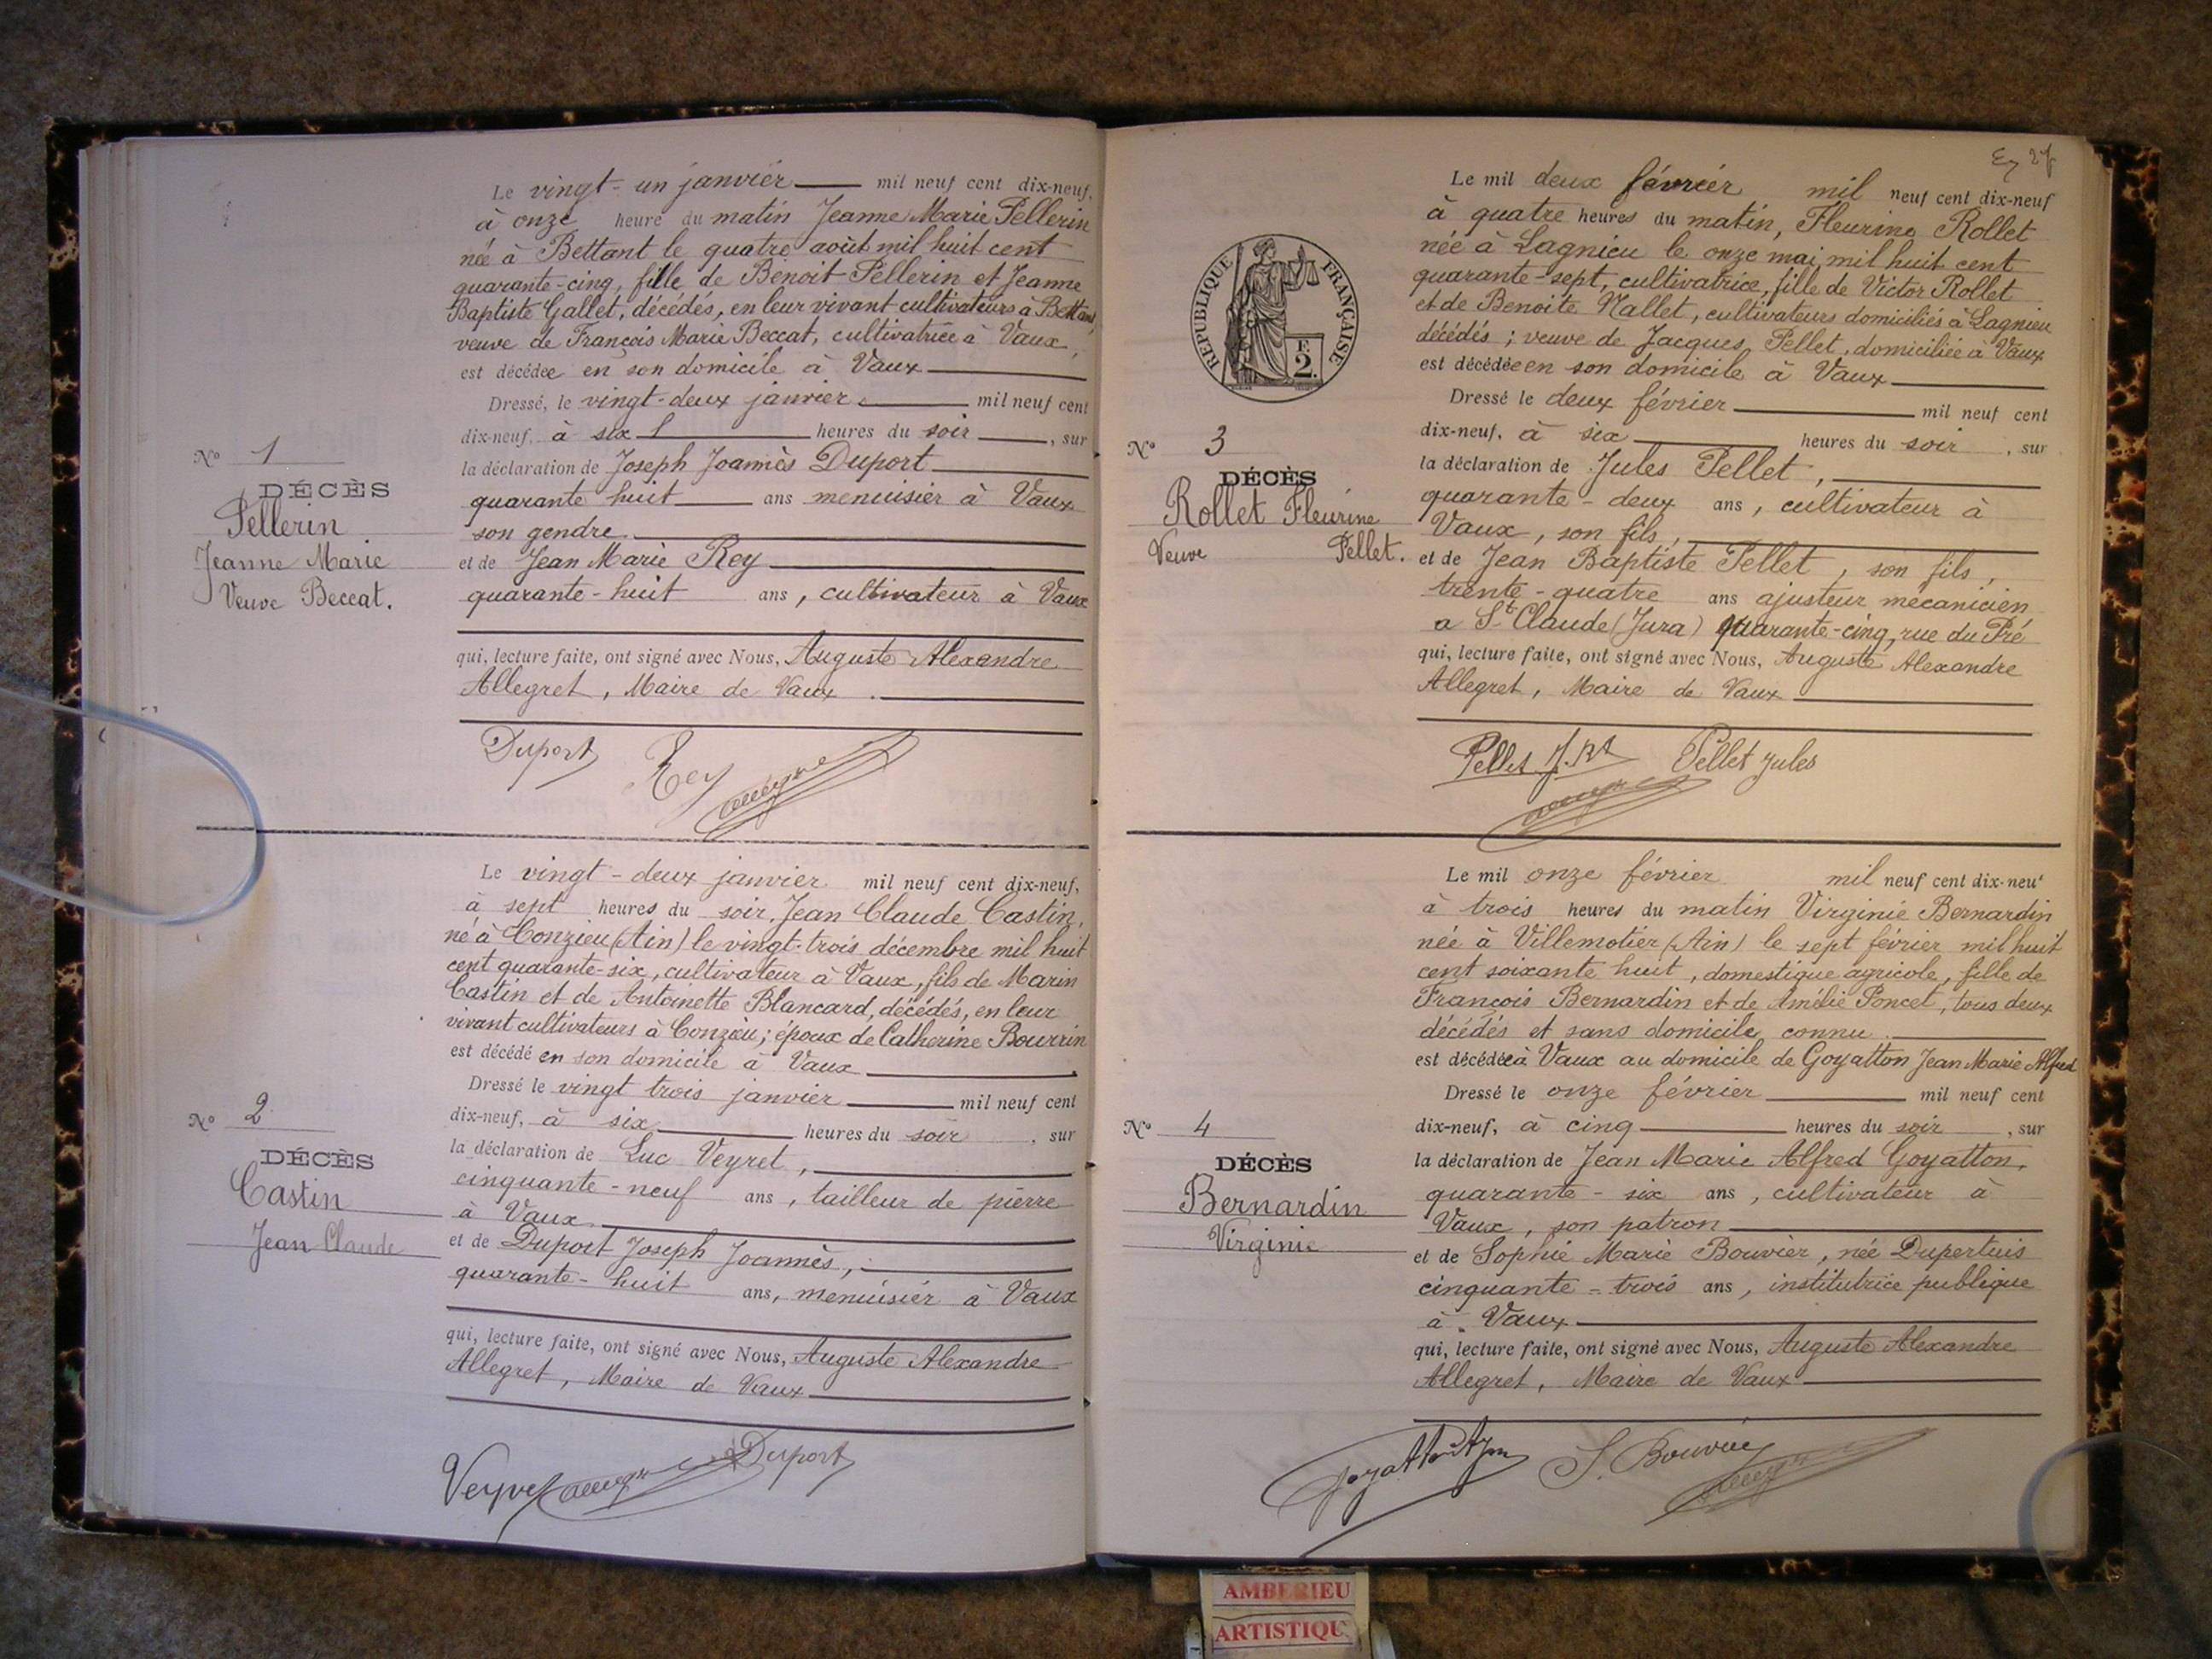 Le vingt-un janvier mil neuf cent dix-neuf,
à onze heure du matin Jeanne Marie Pellerin
née à Bettant le quatre août mil huit cent
quarante-cinq, fille de Benoit Pellerin et Jeanne
Baptiste Gallet, décédés, en leur vivant cultivateurs à Bettant,
veuve de François Marie Beccat, cultivatrice à Vaux,
est décédée en son domicile à Vaux
Dressé, le vingt-deux janvier mil neuf cent
dix-neuf, à six heures du soir, sur
la déclaration de Joseph Joannès Duport
quarante huit ans menuisier à Vaux
son gendre
et de Jean Marie Rey
quarante-huit ans, cultivateur à Vaux
qui, lecture faite, ont signé avec Nous, Auguste Alexandre
Allegret, Maire de Vaux.
N° 1
DÉCÈS
Pellerin
Jeanne Marie
Veuve Beccat.
Duport Rey
Le vingt-deux janvier mil neuf cent dix-neuf,
à sept heures du soir, Jean Claude Castin,
né à Conzieu (Ain) le vingt-trois décembre mil huit
cent quarante-six, cultivateur à Vaux, fils de Marin
Castin et de Antoinette Blancard, décédés, en leur
vivant cultivateurs à Conzieu; époux de Catherine Bourrin
est décédé en son domicile à Vaux
Dressé le vingt trois janvier mil neuf cent
dix-neuf, à six heures du soir, sur
la déclaration de Luc Veyret,
cinquante-neuf ans, tailleur de pierre
à Vaux
et de Duport Joseph Joannès,
quarante-huit ans, menuisier à Vaux
qui, lecture faite, ont signé avec Nous, Auguste Alexandre
Allegret, Maire de Vaux
N° 2
DÉCÈS
Castin
Jean Claude
Veyret Duport
Le mil deux février mil neuf cent dix-neuf
à quatre heures du matin, Fleurine Rollet
née à Lagnieu le onze mai mil huit cent
quarante-sept, cultivatrice, fille de Victor Rollet
et de Benoite Nallet, cultivateurs domiciliés à Lagnieu
décédés; veuve de Jacques Pellet, domiciliée à Vaux
est décédée en son domicile à Vaux
Dressé le deux février mil neuf cent
dix-neuf, à six heures du soir, sur
la déclaration de Jules Pellet,
quarante-deux ans, cultivateur à
Vaux, son fils,
et de Jean Baptiste Pellet, son fils,
trente-quatre ans ajusteur mécanicien
a St Claude (Jura) quarante-cinq, rue du Pré
qui, lecture faite, ont signé avec Nous, Auguste Alexandre
Allegret, Maire de Vaux
RÉPUBLIQUE FRANÇAISE
F.
2.
N° 3
DÉCÈS
Rollet Fleurine
Veuve Pellet.
Pellet J. Bt Pellet Jules
Le mil onze février mil neuf cent dix-neuf
à trois heures du matin Virginie Bernardin
née à Villemotier (Ain) le sept février mil huit
cent soixante huit, domestique agricole, fille de
François Bernardin et de Amélie Poncet, tous deux
décédés et sans domicile connu
est décédée à Vaux au domicile de Goyatton Jean Marie Alfred
Dressé le onze février mil neuf cent
dix-neuf, à cinq heures du soir, sur
la déclaration de Jean Marie Alfred Goyatton,
quarante-six ans, cultivateur à
Vaux, son patron
et de Sophie Marie Bouvier, née Dupertuis
cinquante-trois ans, institutrice publique
à Vaux
qui, lecture faite, ont signé avec Nous, Auguste Alexandre
Allegret, Maire de Vaux
N° 4
DÉCÈS
Bernardin
Virginie
S. Bouvier
AMBERIEU
ARTISTIQU